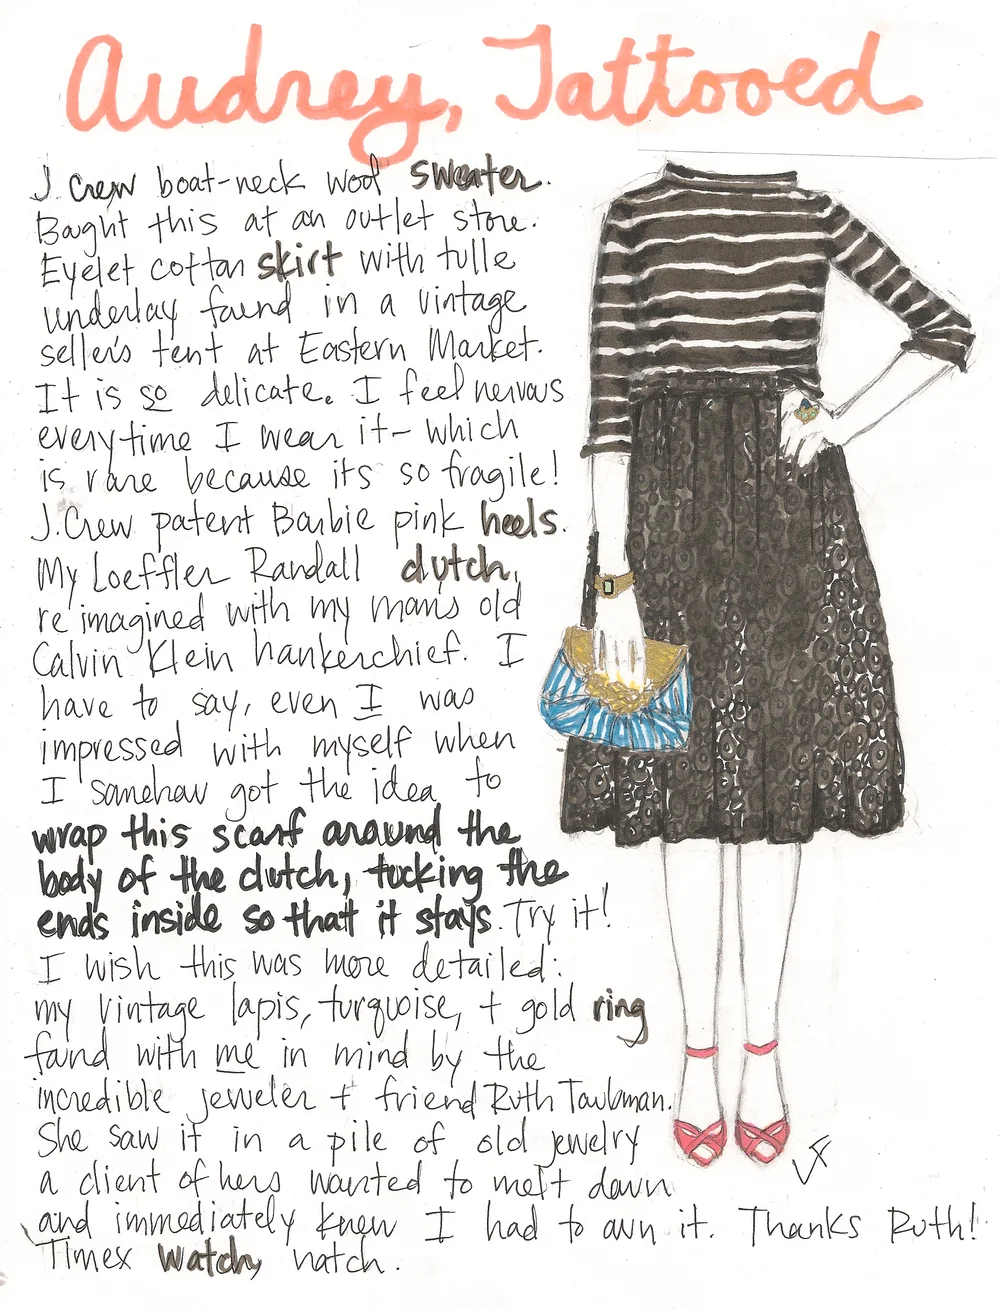 Audrey, Tattooed
J. Crew boat-neck wool sweater.
Bought this at an outlet store.
Eyelet cotton skirt with tulle
underlay found in a vintage
seller's tent at Eastern Market.
It is so delicate. I feel nervous
everytime I wear it- which
is rare because its so fragile!
J.Crew patent Barbie pink heels.
My Loeffler Randall clutch,
reimagined with my man's old
Calvin Klein hankerchief. I
have to say, even I was
impressed with myself when
I somehow got the idea to
wrap this scarf around the
body of the clutch, tucking the
ends inside so that it stays. Try it!
I wish this was more detailed:
my vintage lapis, turquoise, + gold ring
found with me in mind by the
incredible jeweler + friend Ruth Taubman.
She saw it in a pile of old jewelry
a client of hers wanted to melt down
and immediately knew I had to own it. Thanks Ruth!
Timex watch, natch.